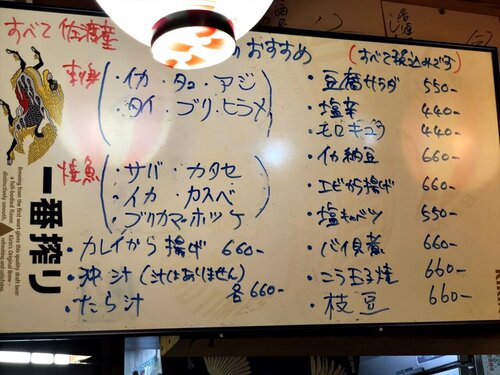 すべて佐渡産
のおすすめ
(すべて税込みです)
刺身
・イカ・タコ・アジ
・タイ・ブリ・ヒラメ
焼魚
・サバ・カタセ
・イカ カスベ
・ブリカマ・ホッケ
・カレイから揚げ 660-
・沖汁(汁はありません)
・たら汁 各660-
・豆腐サラダ 550-
・塩辛 440-
・モロキュウ 440-
・イカ納豆 660-
・エビから揚げ 660-
・塩キャベツ 550-
・バイ貝煮 660-
・ニラ玉子焼 660-
・枝豆 660-
一番搾り
Brewing from the first wort gives this quality draft beer
a full-bodied flavor,
distinctively smooth,
refreshing and satisfying.
Kirin's Original Brew –